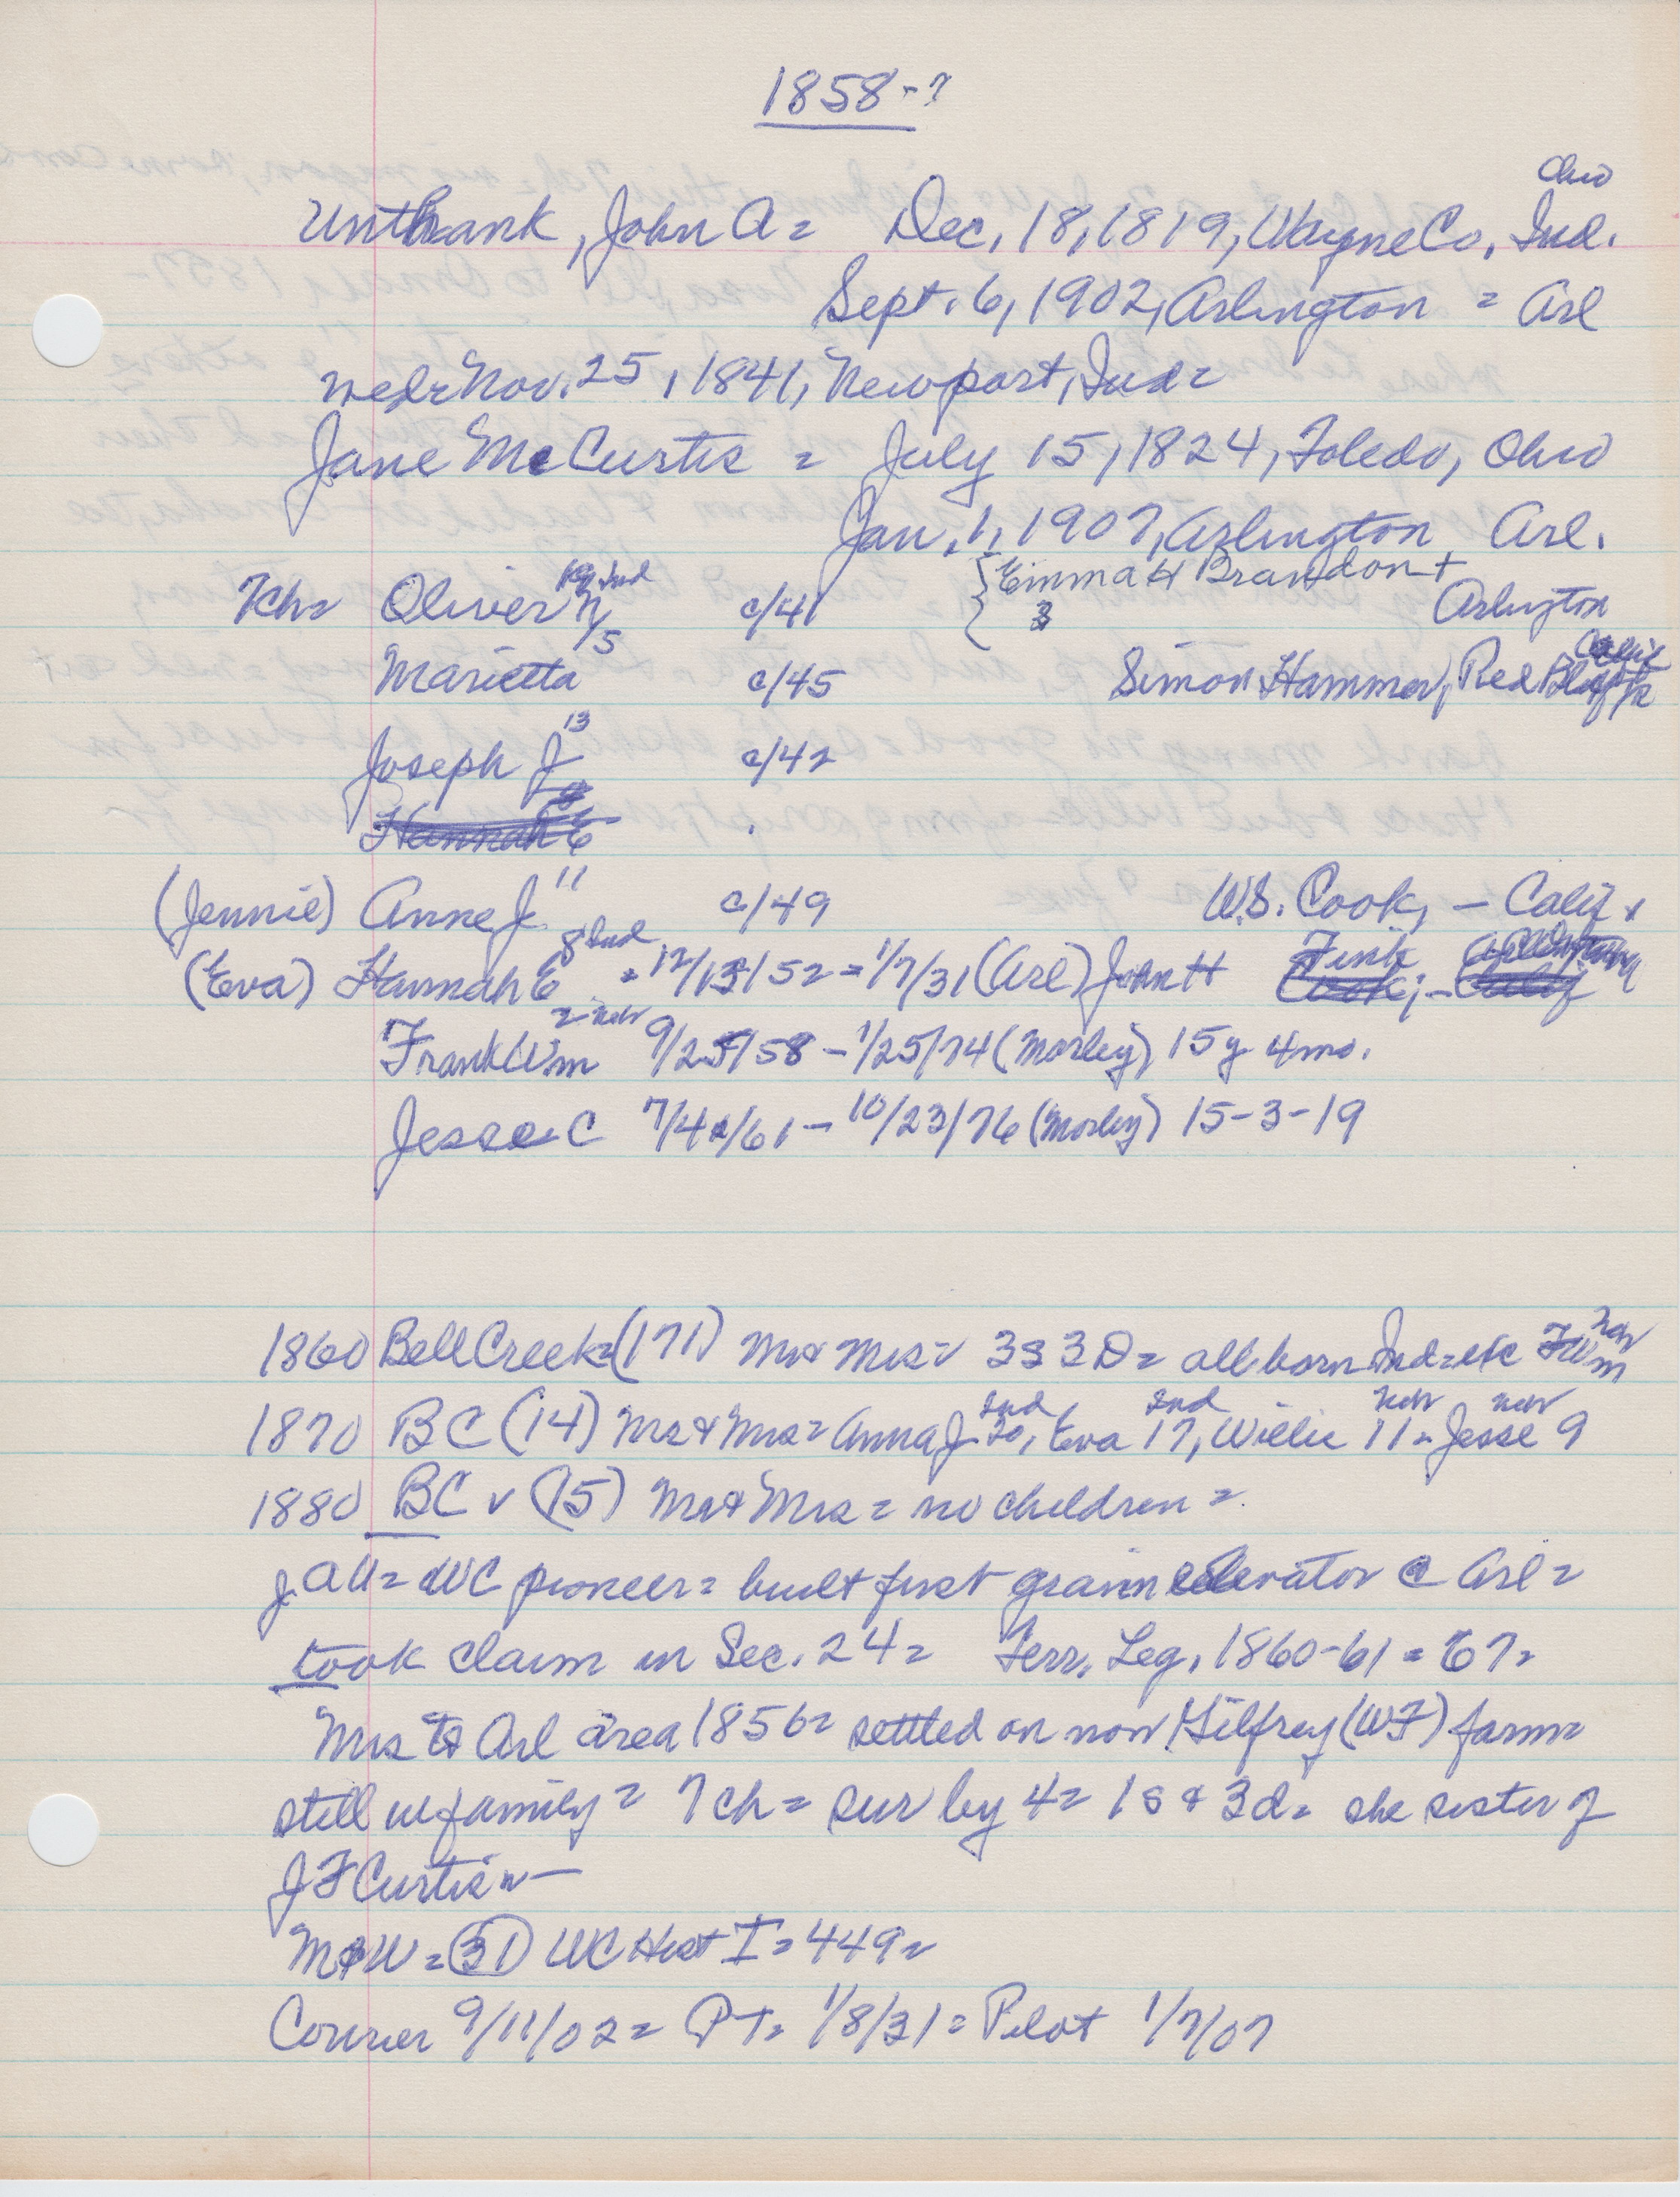 1858-?
Ohio
Unthank, John A = Dec, 18, 1819, Wayne Co, Ind.
Sept. 6, 1902, Arlington = Arl
wed = Nov. 25, 1841, Newport, Ind =
Jane Mc Curtis = July 15, 1824, Toledo, Ohio
Jan, 1, 1907, Arlington Arl.
7ch = Oliver N 19 Ind c/41 {Emma H Brandon +
3 Arlington
15
Marietta c/45 Simon Hammer, Red Bluff Calif
13
Joseph J c/42
Hannah E
(Jennie) Anne J. 11 c/49 W.S. Cook, - Calif
8 Ind Fink Arlington
(Eva) Hannah E = 12/13/52 = 1/7/31 (Arl) John H Cook, - Calif
2 nebr
Frank Wm 9/25/58 - 1/25/74 (Morley) 15 y 4 mo.
Jesse C 7/4/61 - 10/23/76 (Morley) 15-3-19
1860 Bell Creek = (171) Mr & Mrs = 3s 3D = all born Ind = exc FWm nebr
Ind Ind nebr nebr
1870 BC (14) Mr & Mrs = Anna J 20, Eva 17, Willie 11 = Jesse 9
1880 BC v (15) Mr & Mrs = no children =
J.A.U = WC pioneer = built first grain elevator @ Arl =
took claim in Sec. 24 = Terr. Leg, 1860-61 = 67 =
Mrs to Arl area 1856 = settled on now Gilfrey (WF) farm =
still in family = 7 ch = sur by 4 = 1s & 3d = she sister of
J F Curtis -
M&W = 31 WC Hist I = 449 =
Courier 9/11/02 = PT = 1/8/31 = Pilot 1/7/07